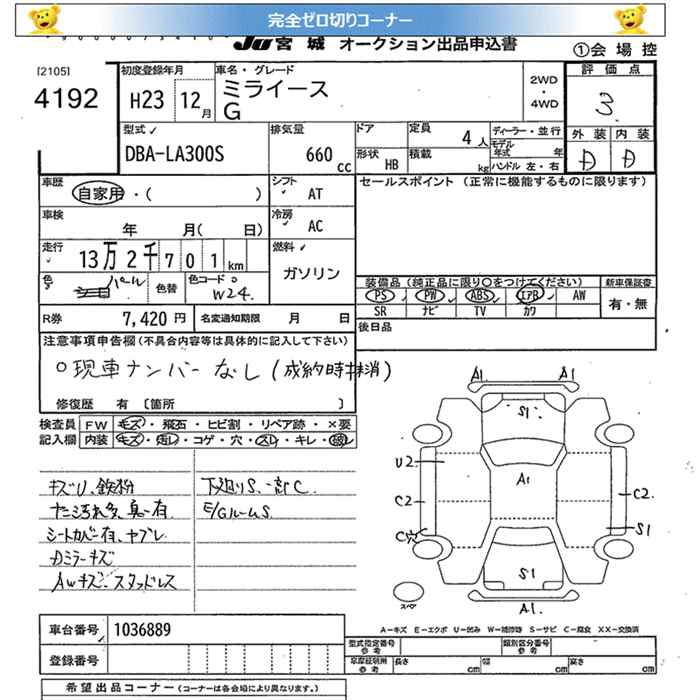 完全ゼロ切りコーナー
JU 宮城 オークション出品申込書
①会場控
[2105]
4192
初度登録年月
H23 12月
車名・グレード
ミライース
G
2WD
・
4WD
評価点
3
外装 内装
D D
型式
DBA-LA300S
排気量
660 cc
ドア
形状 HB
定員 4人
積載 kg
ディーラー・並行
モデル年式 年
ハンドル 左・右
車歴
自家用・( )
シフト AT
セールスポイント (正常に機能するものに限ります)
車検
年 月( 日)
冷房 AC
走行
13万2千701km
燃料
ガソリン
色
パール
色替
色コード
W24.
装備品(純正品に限り○をつけてください)
新車保証書
PS PW ABS エアB AW
有・無
SR ナビ TV カワ
R券 7,420円
名変通知期限 月 日
後日品
注意事項申告欄(不具合内容等は具体的に記入して下さい)
○現車ナンバーなし(成約時抹消)
修復歴 有〔箇所 〕
検査員記入欄
FW キズ・飛石・ヒビ割・リペア跡・×要
内装 キズ・汚レ・コゲ・穴・スレ・キレ・破レ
キズU、鉄粉
下廻りS、一部C.
E/GルームS.
シートカバー有、ヤブレ
Dミラーキズ
AWキズ、スタッドレス
A1 A1
S1
A1
U2
C2
C穴
C2
S1
S1
A1.
スペア
A-キズ E-エクボ U-凹み W-補修跡 S-サビ C-腐食 XX-交換済
車台番号 1036889
登録番号
型式指定番号 参考
類別区分番号 参考
車庫証明用 参考
長さ cm 幅 cm 高さ cm
希望出品コーナー(コーナーは各会場により異なります。)